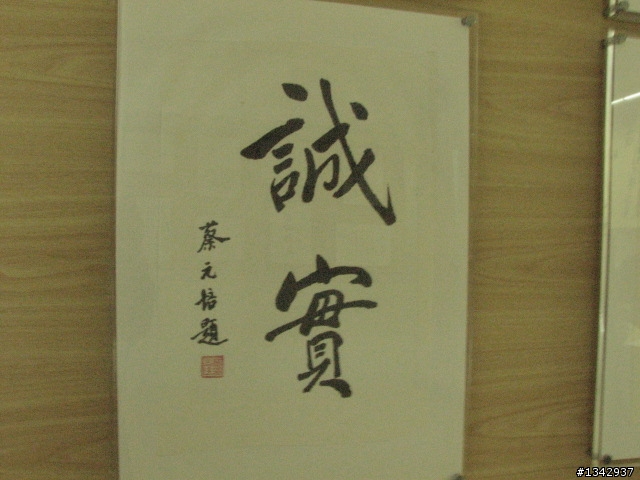 誠實
蔡元培題
#1342937